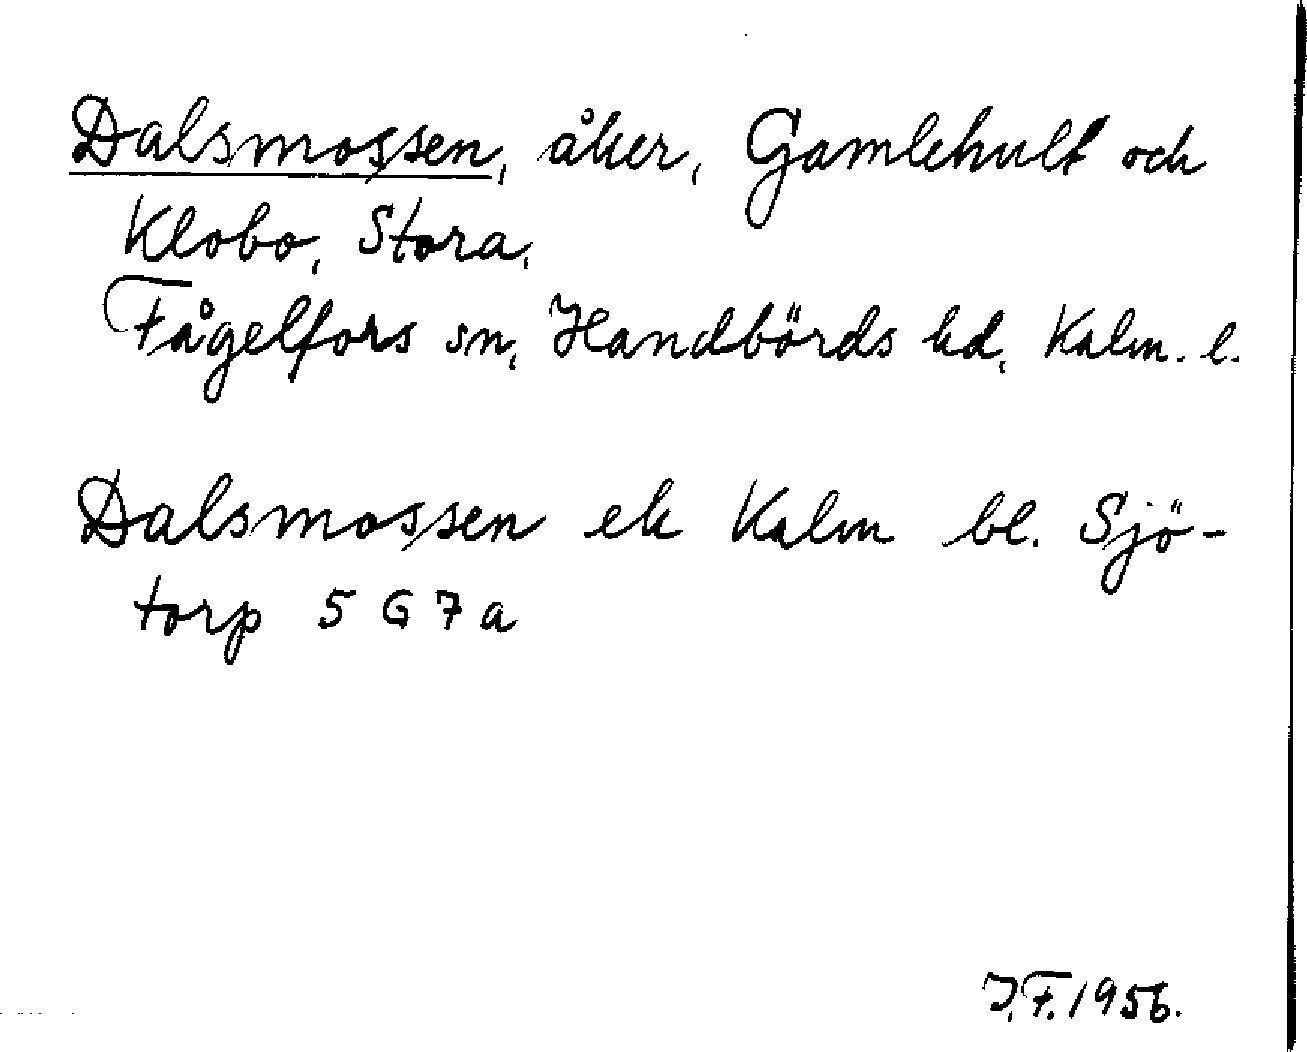 Dalsmossen, åker, Gamlehult och
Klobo, Stora,
Fågelfors sn, Handbörds hd, Kalm. l.
Dalsmossen ek Kalm bl. Sjö-
torp 5 G 7 a
J.F. 1956.